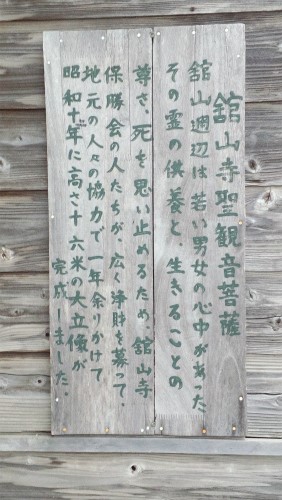 舘山寺聖観音菩薩
舘山週辺は若い男女の心中があった
その霊の供養と、生きることの
尊さ、死を思い止めるため、舘山寺
保勝会の人たちが、広く浄財を募って、
地元の人々の協力で一年余りかけて
昭和十年に高さ十六米の大立像が
完成しました